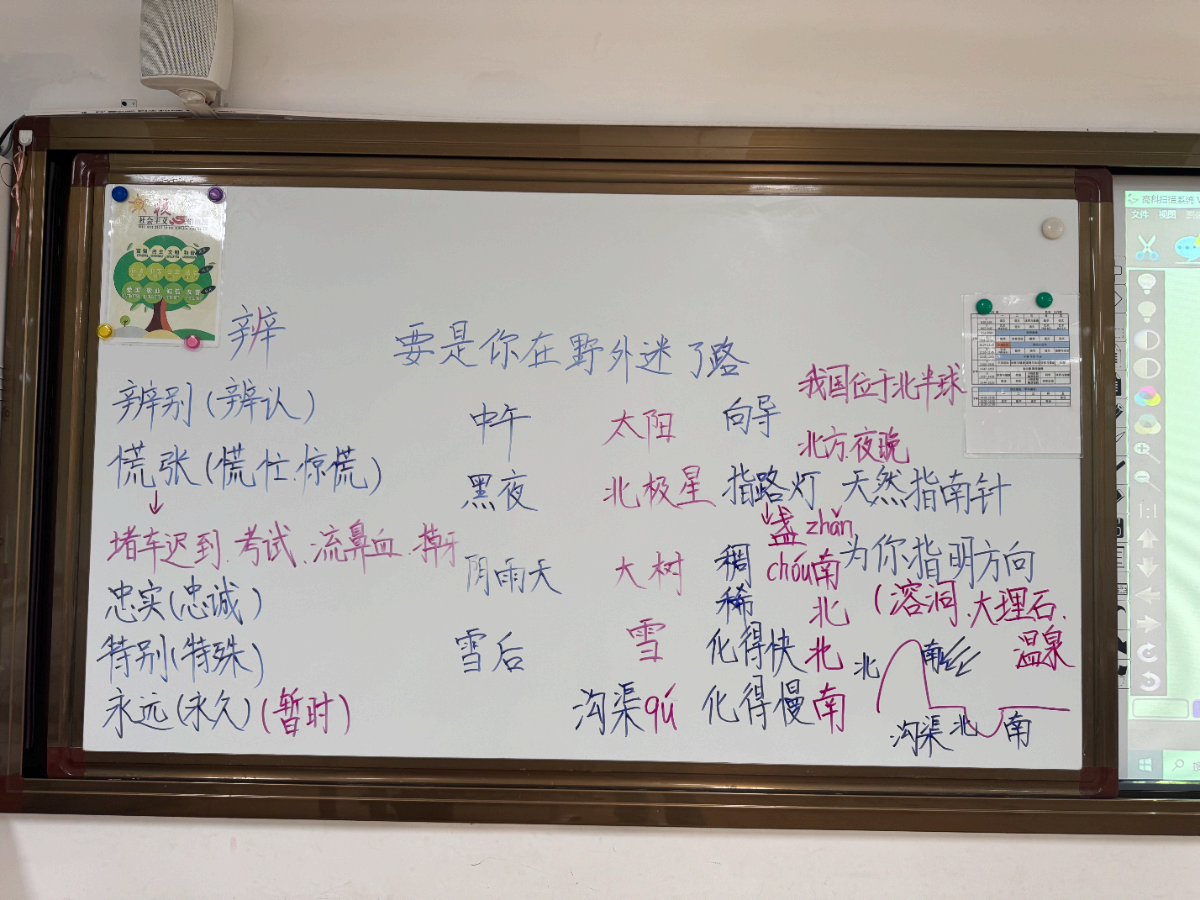 辨
要是你在野外迷了路
辨别(辨认)
慌张(慌忙.惊慌)
↓
堵车迟到.考试.流鼻血.掉牙
忠实(忠诚)
特别(特殊)
永远(永久)(暂时)
中午 太阳 向导
我国位于北半球
北方夜晚
黑夜 北极星 指路灯 天然指南针
↓
盏 zhǎn
阴雨天 大树 稠 chóu 南 为你指明方向
稀 北
(溶洞.大理石.
温泉
雪后 雪 化得快 北
沟渠 qú 化得慢 南
北 南
沟渠 北 南
文件 视图
1:1